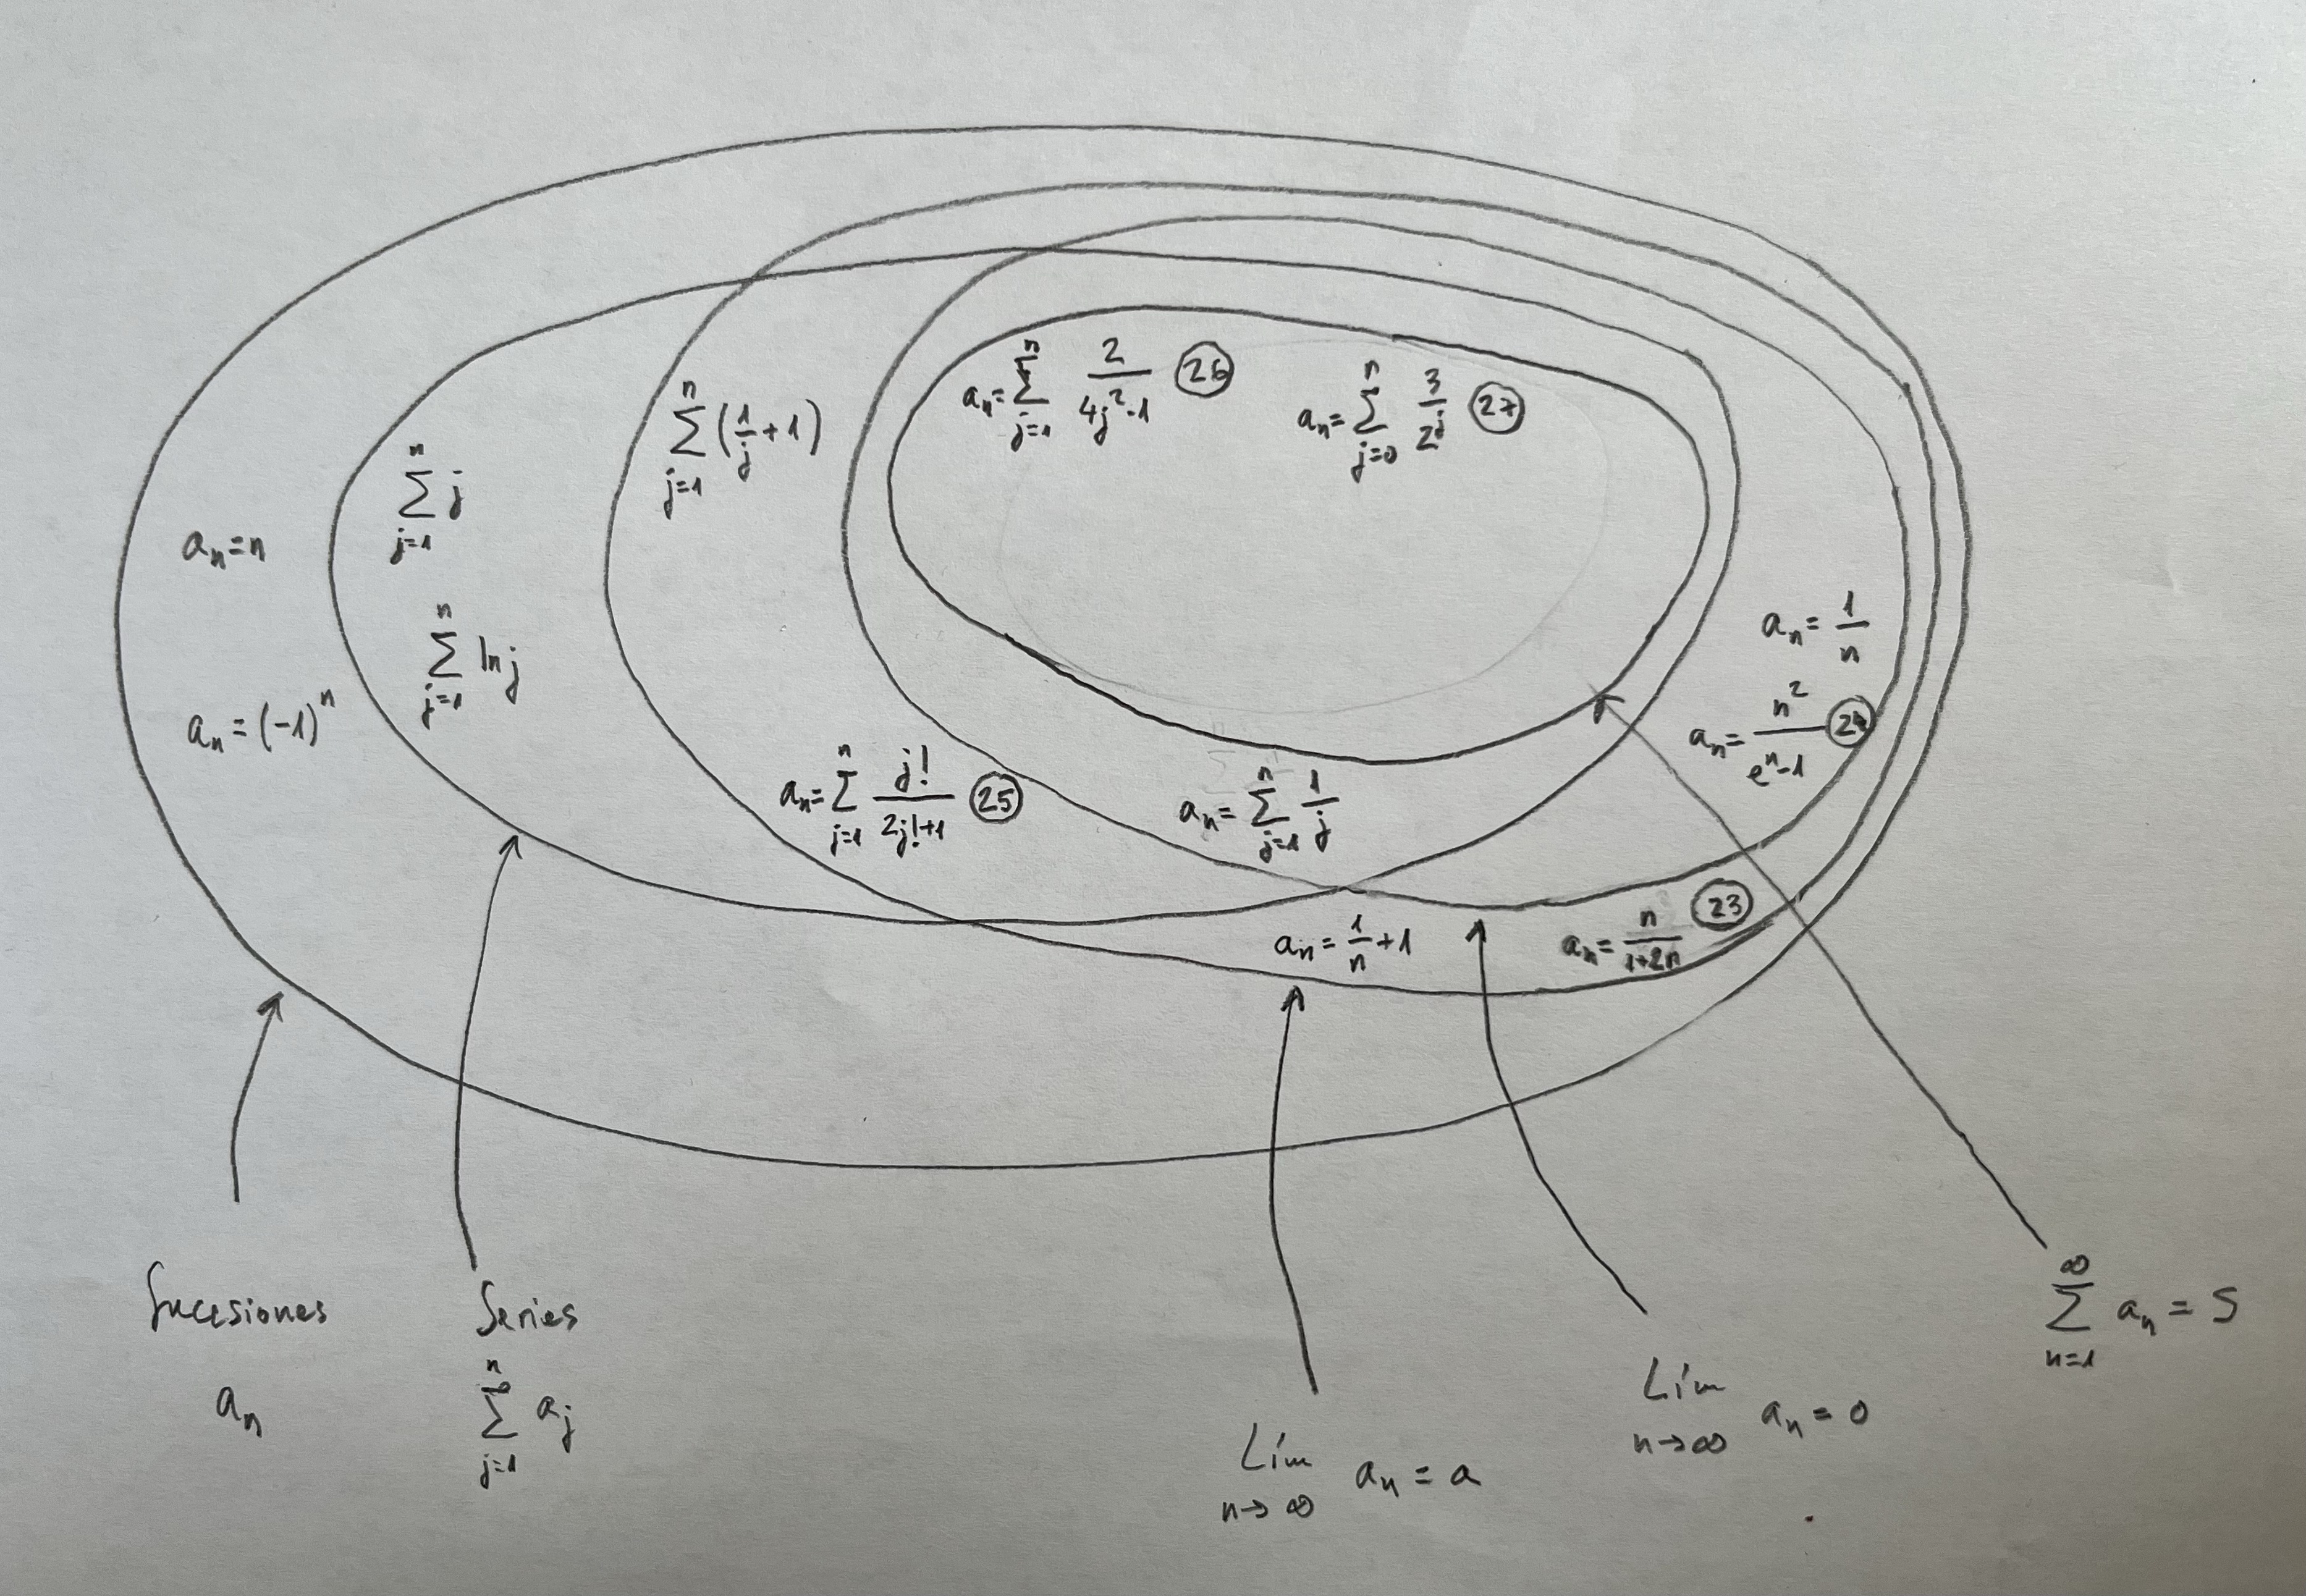 a_n = \sum_{j=1}^{n} \frac{2}{4j^2-1} (26)
a_n = \sum_{j=0}^{n} \frac{3}{2^j} (27)
\sum_{j=1}^{n} (\frac{1}{j}+1)
\sum_{j=1}^{n} j
a_n = n
\sum_{j=1}^{n} ln j
a_n = (-1)^n
a_n = \frac{1}{n}
a_n = \frac{n^2}{e^n-1} (24)
a_n = \sum_{j=1}^{n} \frac{j!}{2j!+1} (25)
a_n = \sum_{j=1}^{n} \frac{1}{j}
a_n = \frac{1}{n}+1
a_n = \frac{n}{1+2n} (23)
Sucesiones
a_n
Series
\sum_{j=1}^{n} a_j
Lím_{n→∞} a_n = a
Lím_{n→∞} a_n = 0
\sum_{n=1}^{∞} a_n = S